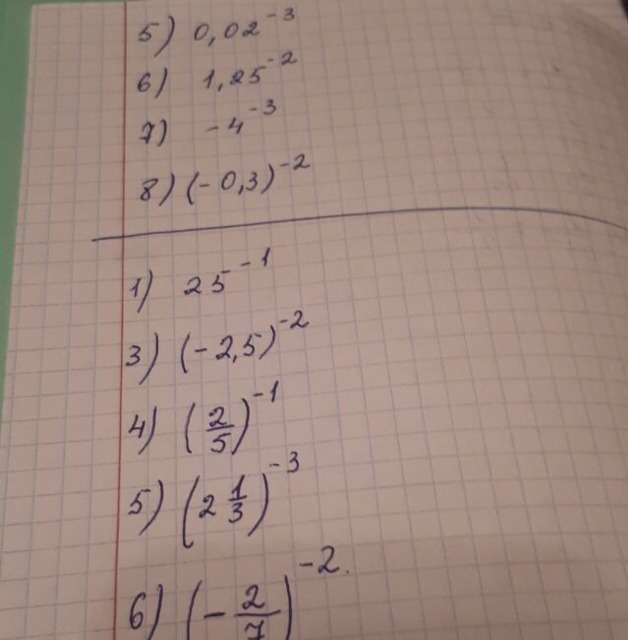 5) 0,02⁻³
6) 1,25⁻²
7) -4⁻³
8) (-0,3)⁻²
1) 25⁻¹
3) (-2,5)⁻²
4) (2/5)⁻¹
5) (2 1/3)⁻³
6) (-2/7)⁻².